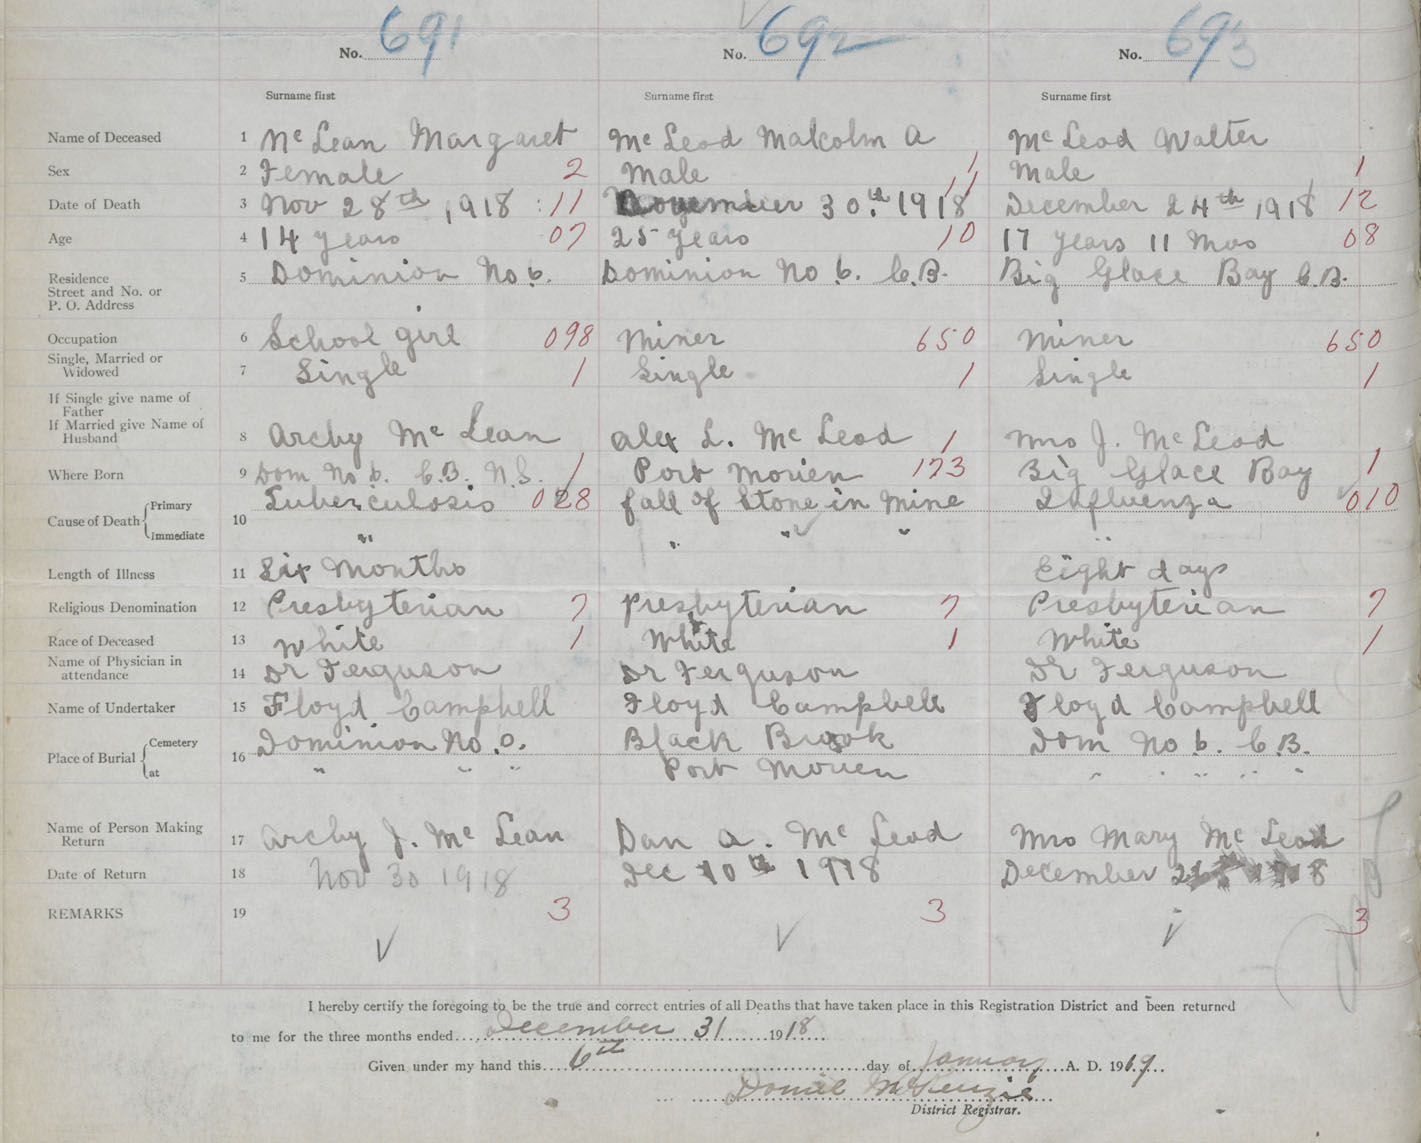 No. 691 No. 692 No. 693
Surname first Surname first Surname first
Name of Deceased 1 Mc Lean Margaret Mc Leod Malcolm A Mc Leod Walter
Sex 2 Female 2 Male 1 Male 1
Date of Death 3 Nov 28th 1918 11 November 30th 1918 11 December 24th 1918 12
Age 4 14 years 07 25 years 10 17 years 11 mos 08
Residence
Street and No. or
P. O. Address 5 Dominion No 6. Dominion No 6. C.B. Big Glace Bay C.B.
Occupation 6 School girl 098 Miner 650 Miner 650
Single, Married or
Widowed 7 Single 1 Single 1 Single 1
If Single give name of
Father
If Married give Name of
Husband 8 Archy Mc Lean Alex L. Mc Leod 1 Mrs J. Mc Leod
Where Born 9 Dom No 6. C.B. N.S. 1 Port Morien 173 Big Glace Bay 1
Cause of Death Primary Tuberculosis 028 fall of Stone in Mine Influenza 010
Immediate 10 " " " " "
Length of Illness 11 Six Months Eight days
Religious Denomination 12 Presbyterian 7 Presbyterian 7 Presbyterian 7
Race of Deceased 13 White 1 White 1 White 1
Name of Physician in
attendance 14 Dr Ferguson Dr Ferguson Dr Ferguson
Name of Undertaker 15 Floyd Campbell Floyd Campbell Floyd Campbell
Place of Burial Cemetery 16 Dominion No 6. Black Brook Dom No 6. C.B.
at " " " Port Morien " " " " "
Name of Person Making
Return 17 Archy J. Mc Lean Dan A. Mc Leod Mrs Mary Mc Leod
Date of Return 18 Nov 30 1918 Dec 10th 1918 December 1918
REMARKS 19 3 3 3
I hereby certify the foregoing to be the true and correct entries of all Deaths that have taken place in this Registration District and been returned
to me for the three months ended December 31 1918
Given under my hand this 6th day of January A. D. 1919
Daniel McKenzie
District Registrar.